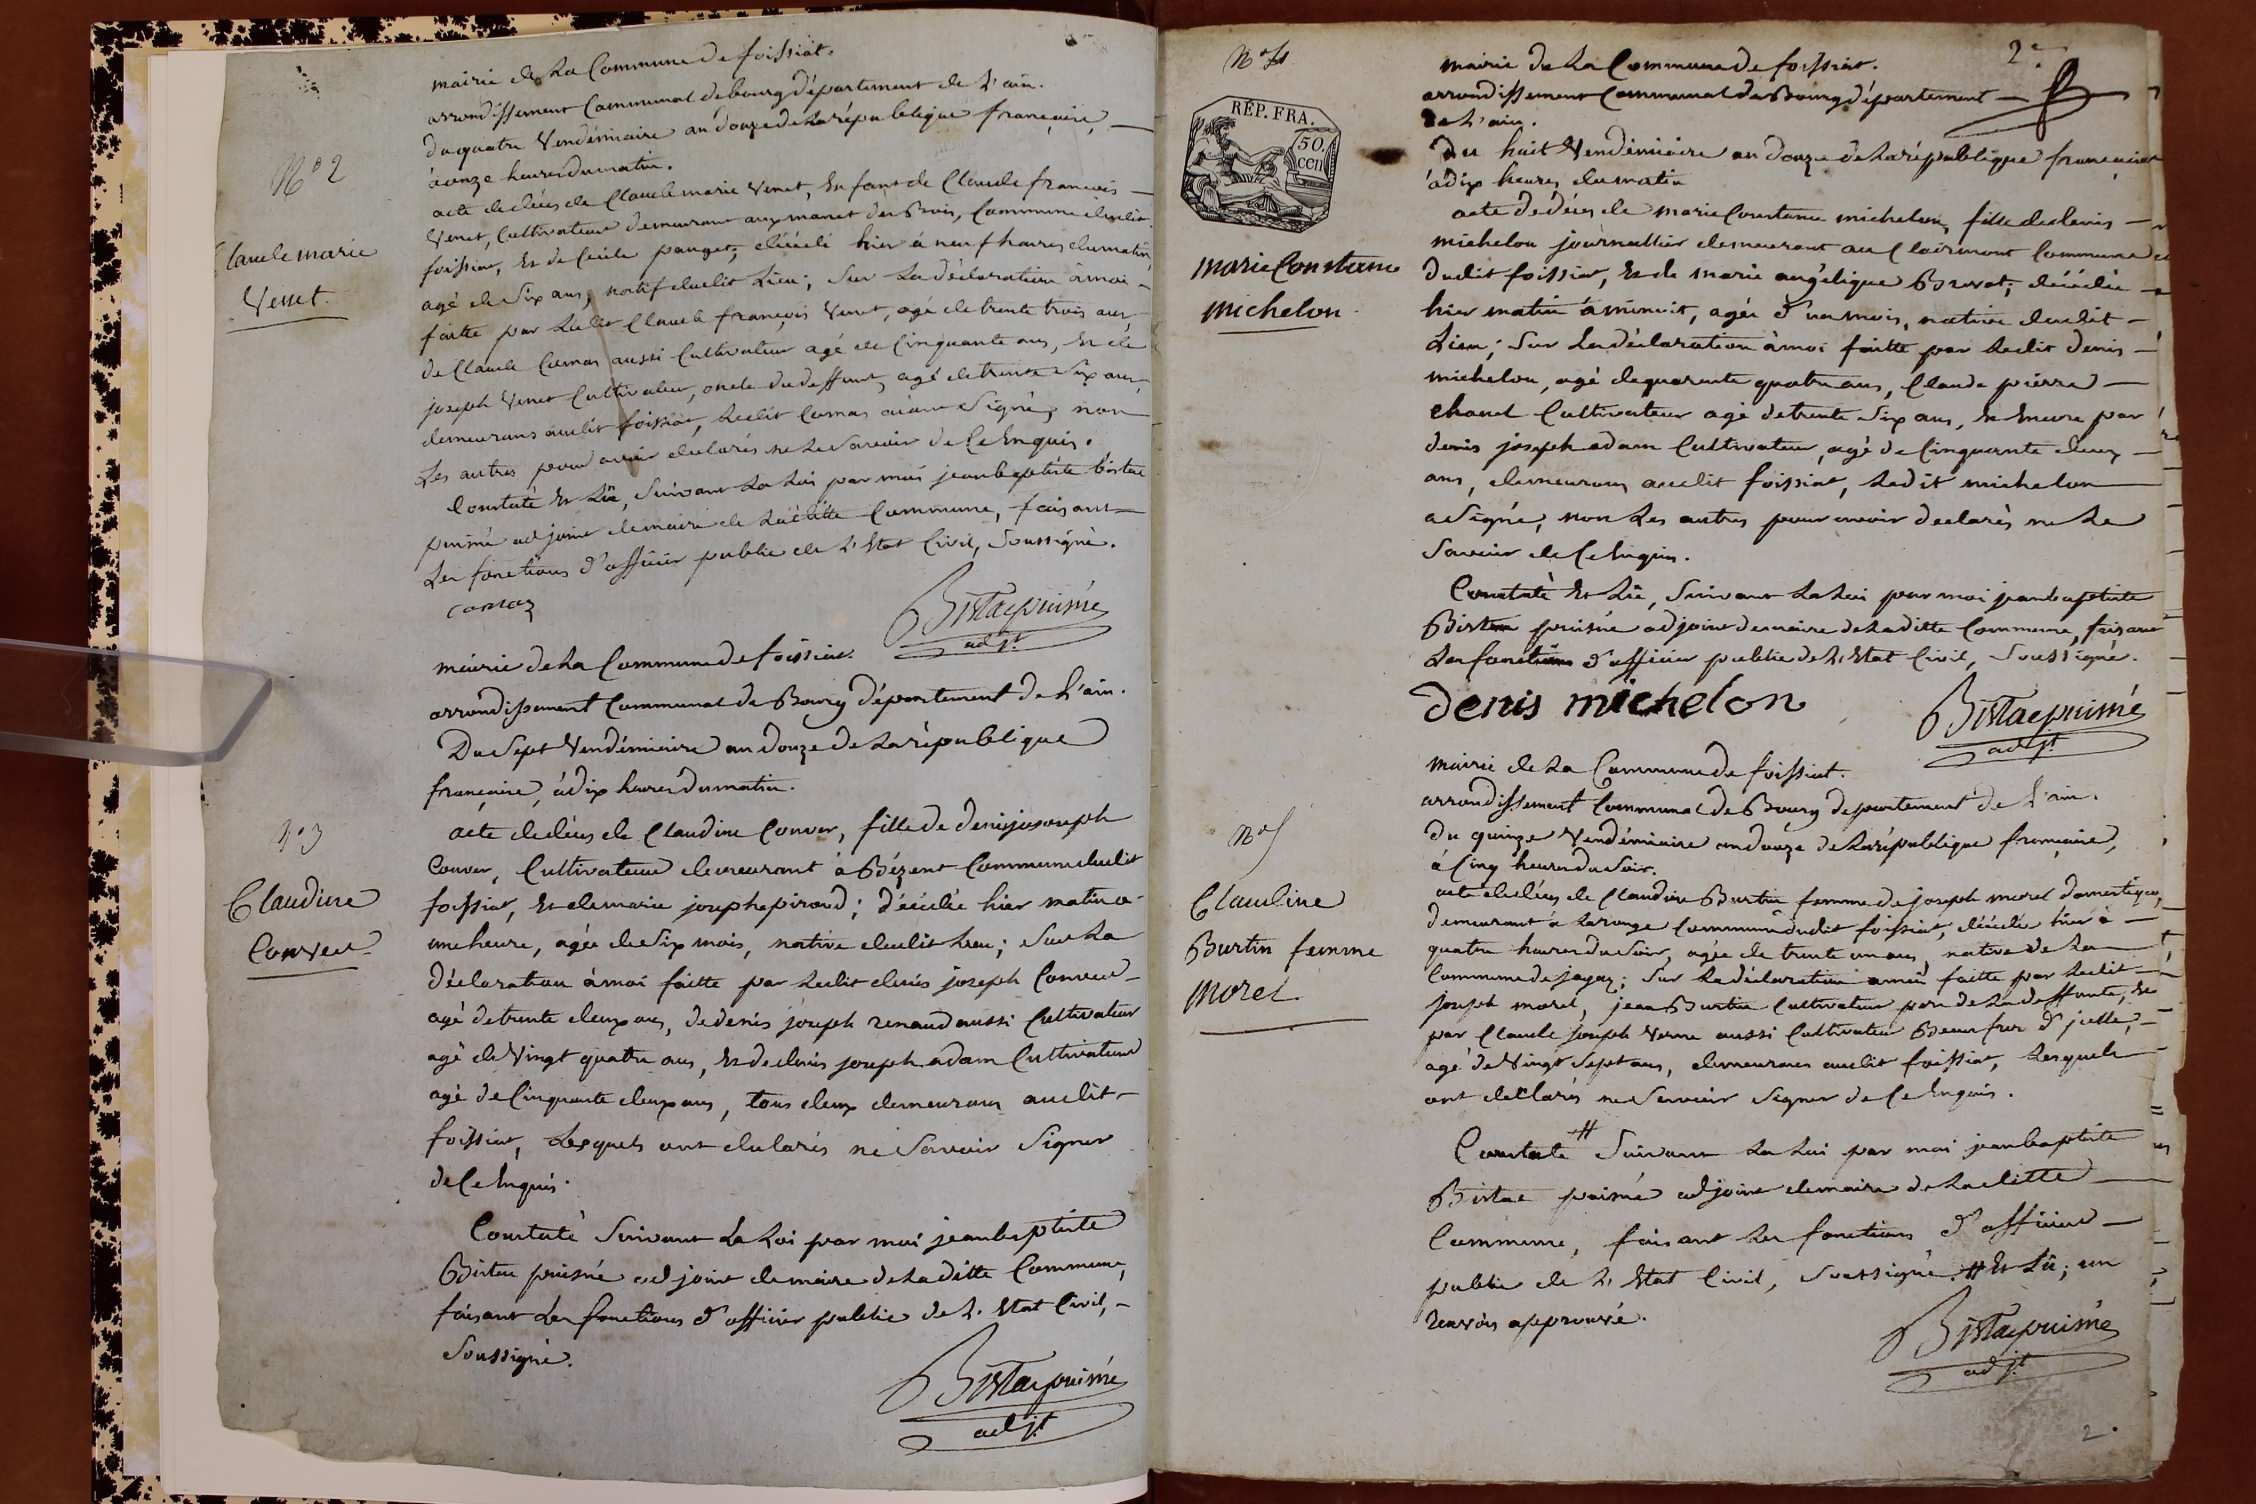 mairie de La Commune de foissiat.
arrondissement Communal de bourg département de L'ain.
Du quatre Vendémiaire an douze de La république française,
à onze heures du matin.
N° 2
Claude marie
Venet
acte de décès de Claude marie Venet, Enfant de Claude françois
Venet, Cultivateur demeurant aux manet des Bois, Commune dudit
foissiat, Et de Cécile pauget, décédé hier à neuf heures du matin,
agé de Six ans, natif dudit Lieu; Sur La déclaration à moi
faitte par Ledit Claude françois Venet, agé de trente trois ans,
de Claude Camas aussi Cultivateur agé de Cinquante ans, Et de
joseph Venet Cultivateur, oncle du deffunt, agé de trente Six ans,
demeurans audit foissiat, Ledit Camas aiant Signé, non
Les autres pour avoir declarés ne Le Savoir de Ce Enquis.
Constaté Et Lû, Suivant La Loi par moi jean baptiste bistac
puisné adjoint de maire de Laditte Commune, faisant
Les fonctions d'officier public de L'Etat Civil, Soussigné.
camaz
Bistac puisné
adj.t
mairie de La Commune de foissiat.
arrondissement Communal de Bourg département de L'ain.
Du Sept Vendémiaire an douze de La république
française, à dix heures du matin.
N° 3
Claudine
Conver
acte de décès de Claudine Conver, fille de denis josouph
Conver, Cultivateur demeurant à Bézent Commune dudit
foissiat, Et de marie josephe piroud; décédée hier matin a
une heure, agée de Six mois, native dudit Lieu; Sur La
déclaration à moi faitte par Ledit denis joseph Conver
agé de trente deux ans, de denis joseph renaud aussi Cultivateur
agé de Vingt quatre ans, Et de denis joseph adam Cultivateur
agé de Cinquante deux ans, tous deux demeurans audit
foissiat, Lesquels ont declarés ne Savoir Signer
de Ce Enquis.
Constaté Suivant La Loi par moi jean baptiste
Bistac puisné adjoint de maire de Laditte Commune,
faisant Les fonctions d'officier public de L'Etat Civil,
Soussigné.
Bistac puisné
adj.t
2.e
N° 4
RÉP. FRA.
50.
cen
mairie de La Commune de foissiat.
arrondissement Communal de Bourg département
de L'ain.
Du huit Vendémiaire an douze de La république française
à dix heures du matin
marie Constance
michelon
acte de décès de marie Constance michelon, fille de denis
michelon journallier demeurant au Clairmont Commune
dudit foissiat, Et de marie angélique Bruvat, décédée
hier matin à minuit, agée d'un mois, native dudit
Lieu; Sur La déclaration à moi faitte par Ledit denis
michelon, agé de quarante quatre ans, Claude pierre
chanel Cultivateur agé de trente Six ans, Et Encore par
denis joseph adam Cultivateur, agé de Cinquante deux
ans, demeurans audit foissiat, Ledit michelon
a Signé, non Les autres pour avoir declarés ne Le
Savoir de Ce Enquis.
Constaté Et Lû, Suivant La Loi par moi jean baptiste
Bistac puisné adjoint de maire de Laditte Commune, faisant
Les fonctions d'officier public de L'Etat Civil, Soussigné.
denis michelon
Bistac puisné
adj.t
mairie de La Commune de foissiat.
arrondissement Communal de Bourg departement de L'ain.
Du quinze Vendémiaire an douze de La république française,
à Cinq heures du Soir.
N° 5
Claudine
Burtin femme
Morel
acte de décès de Claudine Burtin femme de joseph morel domestique,
demeurant à La range Commune dudit foissiat, décédée hier à
quatre heures du Soir, agée de trente un ans, native de La
Commune de jayaz; Sur La déclaration à moi faitte par Ledit
joseph morel, jean Burtin Cultivateur père de La deffunte, Et
par Claude joseph Verne aussi Cultivateur Beau frere d'jcelle,
agé de Vingt Sept ans, demeurans audit foissiat, Lesquels
ont declarés ne Savoir Signer de Ce Enquis.
Constaté # Suivant La Loi par moi jean baptiste
Bistac puisné adjoint de maire de Laditte
Commune, faisant Les fonctions d'officier
public de L'Etat Civil, Soussigné. # Et Lû; un
renvois approuvé.
Bistac puisné
adj.t
2.